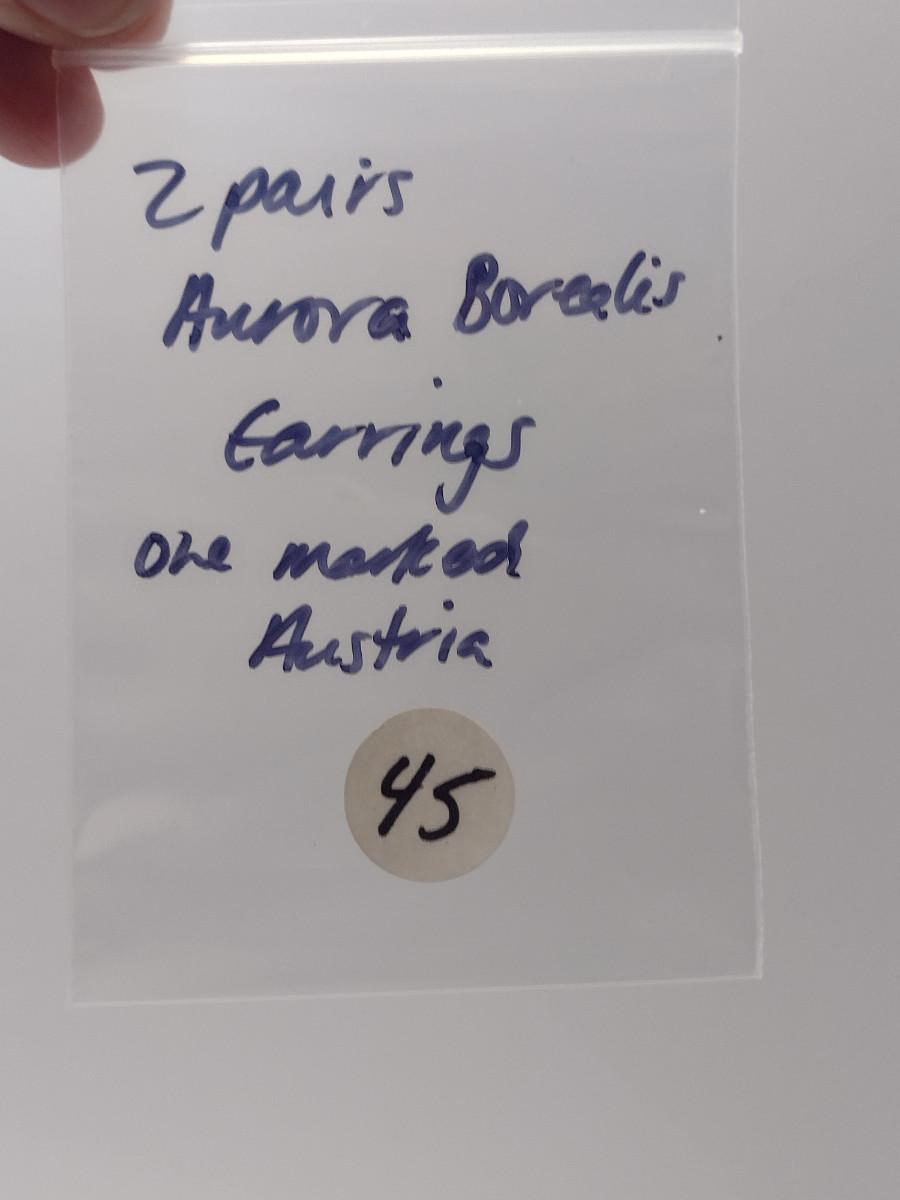 2 pairs
Aurora Borealis
Earrings
one marked
Austria
45